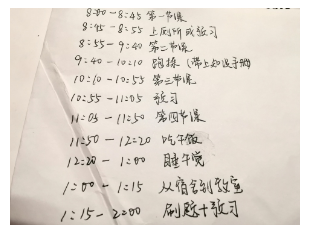 8:00-8:45 第一节课
8:45-8:55 上厕所或预习
8:55-9:40 第二节课
9:40-10:10 跑操(带上知识手册)
10:10-10:55 第三节课
10:55-11:05 预习
11:05-11:50 第四节课
11:50-12:20 吃午饭
12:20-1:00 睡午觉
1:00-1:15 从宿舍到教室
1:15-2:00 刷题+预习